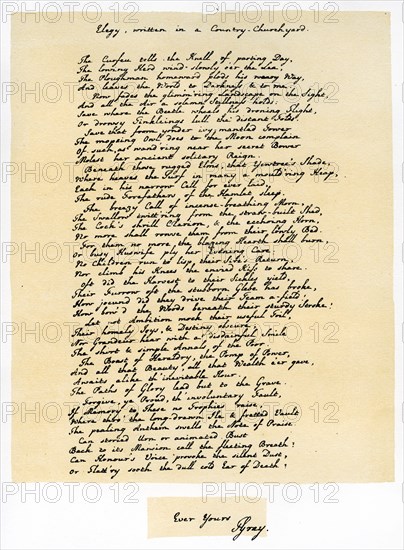 Elegy, written in a Country-Churchyard.
The Curfeu tolls the Knell of parting Day,
The lowing Herd wind slowly o'er the Lea,
The Ploughman homeward plods his weary Way,
And leaves the World to Darkness & to me.
Now fades the glimm'ring Landscape on the Sight,
And all the Air a solemn Stillness holds;
Save where the Beetle wheels his droning Flight,
Or drowsy Tinklings lull the distant Folds.
Save that from yonder ivy-mantled Tower
The mopeing Owl does to the Moon complain
Of such, as wand'ring near her secret Bower
Molest her ancient solitary Reign.
Beneath those rugged Elms, that Yewtree's Shade,
Where heaves the Turf in many a mould'ring Heap,
Each in his narrow Cell for ever laid,
The rude Forefathers of the Hamlet sleep.
The breezy Call of incense-breathing Morn,
The Swallow twitt'ring from the straw-built Shed,
The Cock's shrill Clarion, & the ecchoing Horn,
No more shall rouse them from their lowly Bed.
For them no more the blazing Hearth shall burn,
Or busy Huswife ply her Evening Care:
No Children run to lisp their Sire's Return,
Nor climb his Knees the envied Kiss to share.
Oft did the Harvest to their Sickle yield,
Their Furrow oft the stubborn Glebe has broke,
How jocund did they drive their Team a-field!
How bow'd the Woods beneath their sturdy Stroke!
Let not Ambition mock their useful Toil,
Their homely Joys, & Destiny obscure;
Nor Grandeur hear with a disdainful Smile
The short & simple Annals of the Poor.
The Boast of Heraldry, the Pomp of Power,
And all that Beauty, all that Wealth e'er gave,
Awaits alike th' inevitable Hour.
The Paths of Glory lead but to the Grave.
Forgive, ye Proud, th' involuntary Fault,
If Memory to These no Trophies raise,
Where thro' the long-drawn Ile & fretted Vault
The pealing Anthem swells the Note of Praise.
Can storied Urn or animated Bust
Back to its Mansion call the fleeting Breath?
Can Honour's Voice provoke the silent Dust,
Or Flatt'ry sooth the dull cold Ear of Death?
Ever Yours
TGray.